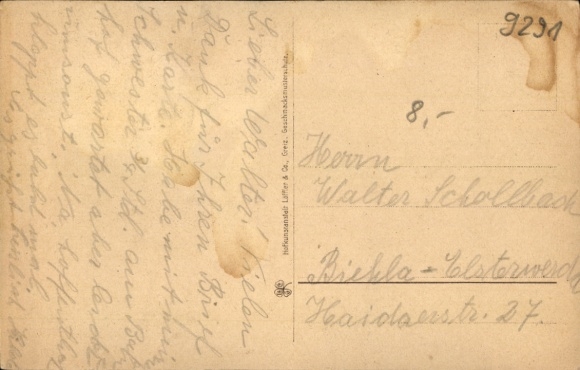 Lieber Walter! Vielen
Dank für Ihren Brief
u. Karte. Habe mit
Schwester ¾ Std. am
gewartet aber leider
umsonst. Na, hoffentlich
klappt es
Hofkunstanstalt Löffler & Co., Greiz. Geschmacksmusterschutz.
9291
8,-
Herrn
Walter Schollbach
Biehla-Elsterwerda
Haidaerstr. 27.